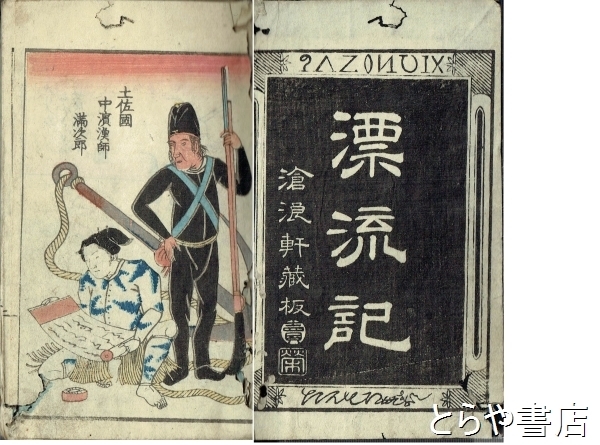 漂流記
滄浪軒藏板
土佐國
中濱漁師
満次郎
とらや書店